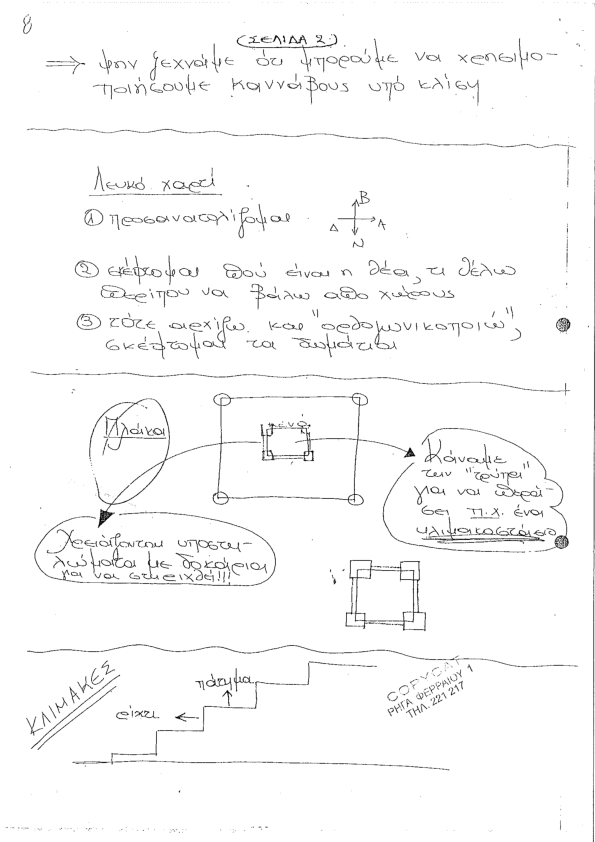 8
(ΣΕΛΙΔΑ 2)
⇒ μην ξεχνάμε ότι μπορούμε να χρησιμο-
ποιήσουμε καννάβους υπό κλίση
Λευκό χαρτί
① προσανατολίζομαι
Β
Δ Α
Ν
② σκέφτομαι πού είναι η θέα, τι θέλω
περίπου να βάλω απο χώρους
③ τότε αρχίζω και "ορθογωνικοποιώ",
σκέφτομαι τα δωμάτια
Πλάκα
κενό
Κάναμε
την "τρύπα"
για να περά-
σει π.χ. ένα
κλιμακοστάσιο
Χρειάζονται υποστυ-
λώματα με δοκάρια
για να στηριχθεί!!!
ΚΛΙΜΑΚΕΣ
πάτημα
ρίχτι
COPYCAT
ΡΗΓΑ ΦΕΡΡΑΙΟΥ 1
ΤΗΛ. 221 217